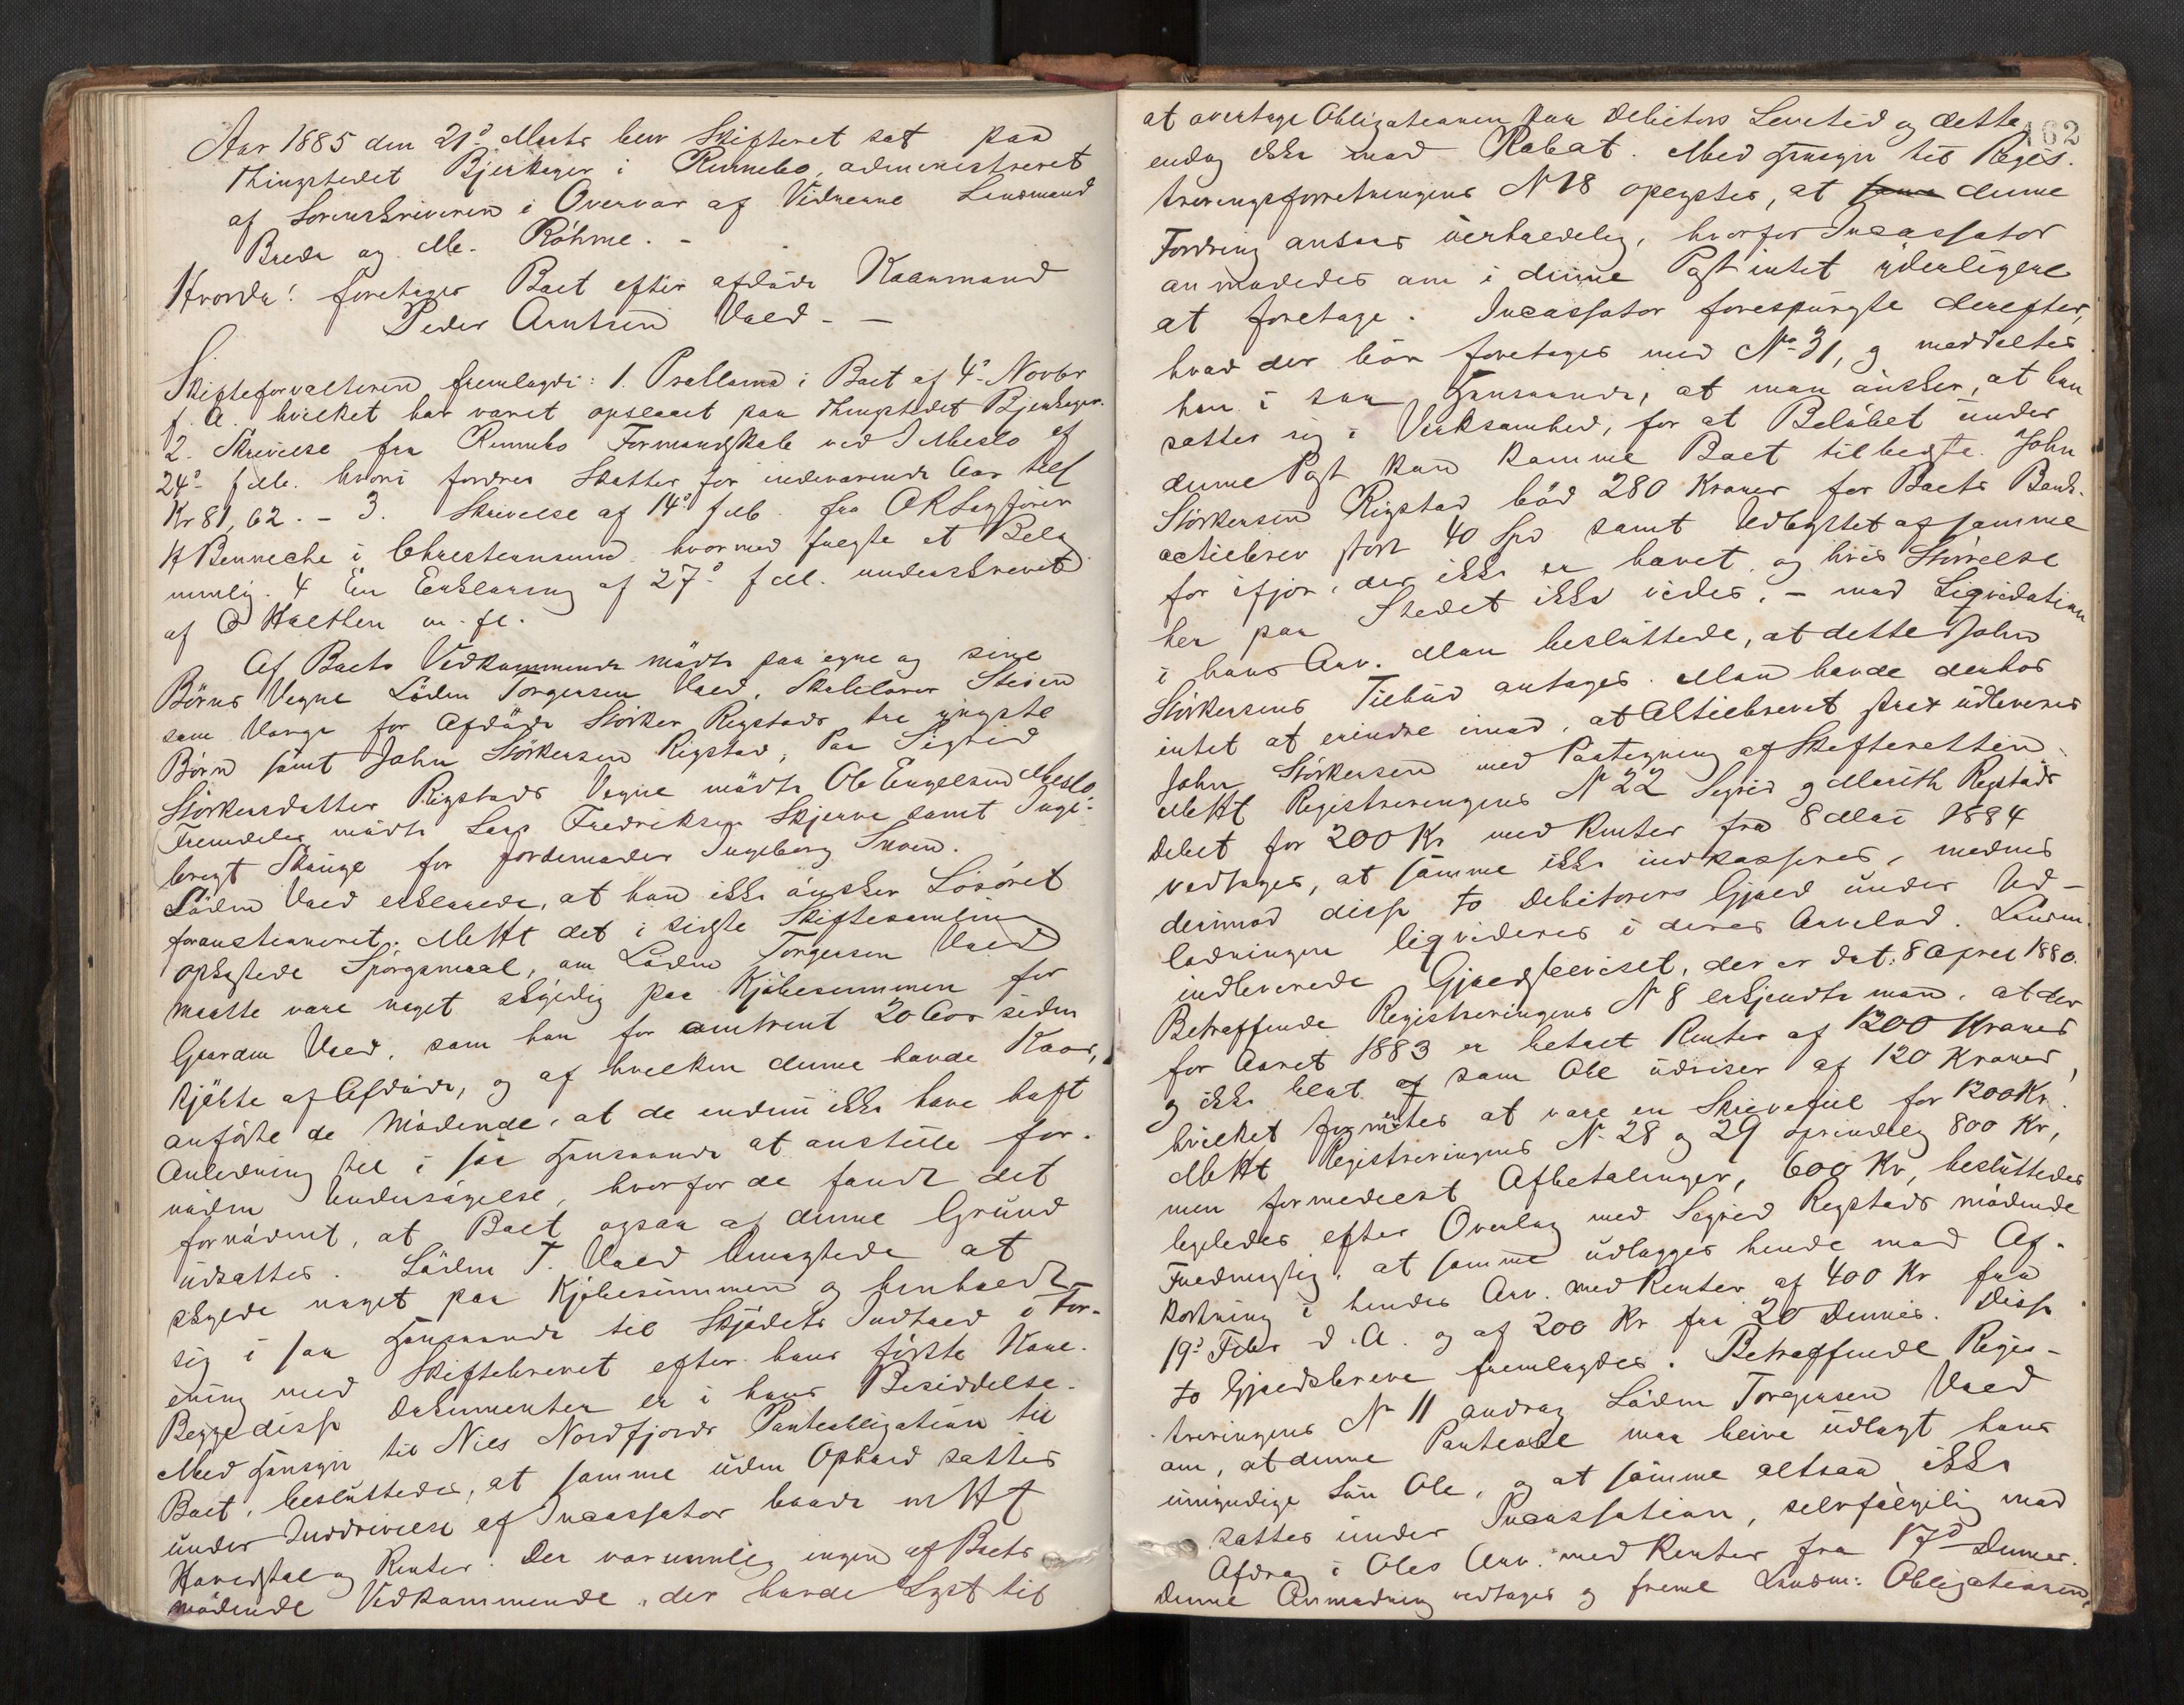 Aar 1885 den 21de Marts blev Skifteret sat paa
Thingstedet Bjerkager i Rennebo, administreret
af Sorenskriveren i Overvær af Vidnerne Lensmand
Brede og M. Röhme. -
Hvorda! foretages Boet efter afdöde Kaarmand
Peder Arntsen Uved - -
Skifteforvalteren fremlagde: 1. Proklama i Boet af 4de Novbr
f. A. hvilket har været opslaaet paa Thingstedet Bjerkager.
2. Skrivelse fra Rennebo Formandskab ved J Meslo af
24de f. M. hvori fordres Skatter for indeværende Aar till
Kr 81,62. - 3. Skrivelse af 14de f. M. fra ORSagförer
H Benneche i Christiansund hvormed fulgte et Belög
nemlig. 4 En Erklæring af 27de f M. underskrevet
af O Halthen m. fl.
Af Boets Vedkommende mödte paa egne og sine
Börns Vegne Lödin Torgersen Uved, Skolelærer Steien
som Værge for Afdöde Störker Rigstads tre yngste
Börn samt John Störkersen Rigstad, Paa Sigrid
Störkersdatter Rigstads Vegne mödte Ole Engelsen Meslo
Fremdeles mödte Lars Fredriksen Skjerve samt Inge-
brigt Skauge for Jordemoder Ingeborg Snoen.
Lödin Uved erklærede, at han ikke önsker Lösöret
foraustioneret. M Ht det i sidste Skiftesamling
opkastede Spörgsmaal, om Lödin Torgersen Uved
maatte være noget skyldig paa Kjöbesummen for
Gaarden Uved, som han for omtrent 20 Aar siden
kjöbte af Afdöde, og af hvilken denne havde Kaar,
anförte de Mödende, at de endnu ikke have havt
Anledning til i saa Henseende at anstille for-
nöden Undersögelse, hvorfor de fandt det
fornödent, at Boet ogsaa af denne Grund
udsattes. Lödin T. Uved benegtede at
skylde noget paa Kjöbesummen og henholdt
sig i saa Henseende til Skjödets Indhold i For-
ening med Skiftebrevet efter hans förste Kone.
Begge disse Dokumenter er i hans Besiddelse.
Med Hensyn til Nils Nordfjords Panteobligation til
Boet, besluttedes, at samme uden Ophold sættes
under Inddrivelse af Incassator baade m Ht
Hovedstol og Renter. Der var nemlig ingen af Boets
mödende Vedkommende, der havde Lyst til
162
at overtage Obligationen paa Debitors Levetid og dette
endog ikke mod Rabat. Med Hensyn til Regis-
treringsforretningens N 18 oplystes, at denne
Fordring ansees uerholdelig, hvorfor Incassator
anmodedes om i denne Post intet yderligere
at foretage. Incassator forespurgte derefter,
hvad der bör foretages med No 31, og meddeltes
han i saa Henseende, at man önsker, at han
sætter sig i Virksomhed, for at Belöbet under
denne Post kan komme Boet tilbedste. John
Störkersen Rigstad böd 280 Kroner for Boets Bank-
actiebrev stort 40 Spd samt Udbyttet af samme
for ifjor, der ikke er hævet og hvis Störrelse
her paa Stedet ikke vides, - mod Liqvidation
i hans Arv. Man besluttede, at dette John
Störkersens Tilbud antages. Man havde derhos
intet at erindre imod, at Aktiebrevet strax udleveres
John Störkersen med Paategning af Skifteretten.
M Ht Registreringens N 22 Sigrid og Marith Rigstads
Debet for 200 Kr med Renter fra 8 Mai 1884
vedtages, at samme ikke indkasseres, medens
derimod disse to Debitorers Gjæld under Ud-
lodningen liqvideres i deres Arvelod. Lensm.
indleverede Gjældsbeviset, der er dat: 8 April 1880.
Betræffende Registreringens N 8 erkjendte man, at der
for Aaret 1883 er betalt Renter af 1200 Kroner
og ikke blot som Obl udviser af 120 Kroner,
hvilket formentes at være en Skrivefeil for 1200 Kr.
M Ht Registreringens N. 28 og 29 oprindelig 800 Kr,
men formedelst Afbetalinger, 600 Kr, besluttedes
ligeledes efter Overlæg med Sigrid Rigstads mödende
Fuldmægtig, at samme udlægges hende mod Af-
kortning i hendes Arv. med Renter af 400 Kr fra
19de Febr d. A. og af 200 Kr fra 20 Dennes. Disse
to Gjældsbreve fremlagdes. Betræffende Regis-
treringens No 11 androg Lödin Torgersen Uved
om, at denne Panteobl maa blive udlagt hans
umyndige Sön Ole, og at samme altsaa ikke
sættes under Incassation, selvfölgelig mod
Afdrag i Oles Arv. med Renter fra 17de Dennes.
Denne Anmodning vedtages og Lensm: Obligationen,